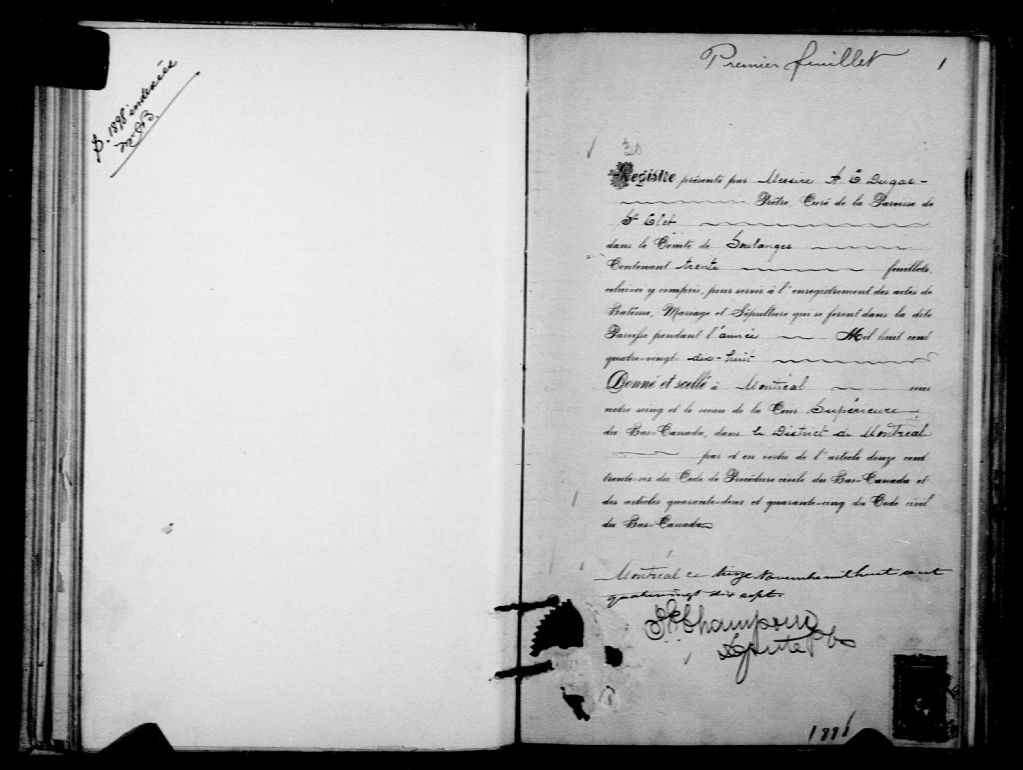 B. 1898 indexée
Premier feuillet 1
30
Registre présenté par Messire A E Dugas
Prêtre, Curé de la Paroisse de
St Clet
dans le Comté de Soulanges
Contenant trente feuillets,
celui-ci y compris, pour servir à l'enregistrement des actes de
Batême, Mariage et Sépulture qui se feront dans la dite
Paroisse pendant l'année Mil huit cent
quatre-vingt dix-huit
Donné et scellé à Montréal sous
notre seing et le sceau de la Cour Supérieure
du Bas-Canada, dans le District de Montréal
par et en vertu de l'article douze cent
trente-six du Code de Procédure civile du Bas-Canada et
des articles quarante-deux et quarante-cinq du Code civil
du Bas-Canada
Montréal ce treize Novembre mil huit cent
quatrevingt dix sept.
Champoux
Députe